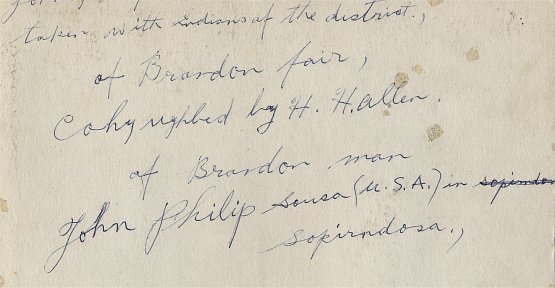 taken with indians of the district.,
of Brandon fair,
Cohyughbed by H. H. Allen.
of Brandon man
John Philip Sousa (U.S.A.) in sopirndo
sopirndosa.,